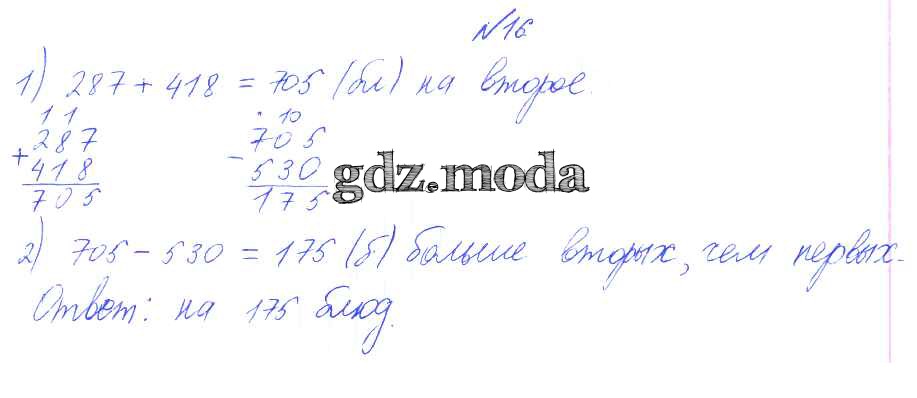 №16
1) 287 + 418 = 705 (бл) на второе.
1 1 . 10
+ 287 - 705
418 530
705 175
gdz.moda
2) 705 - 530 = 175 (б) больше вторых, чем первых.
Ответ: на 175 блюд.